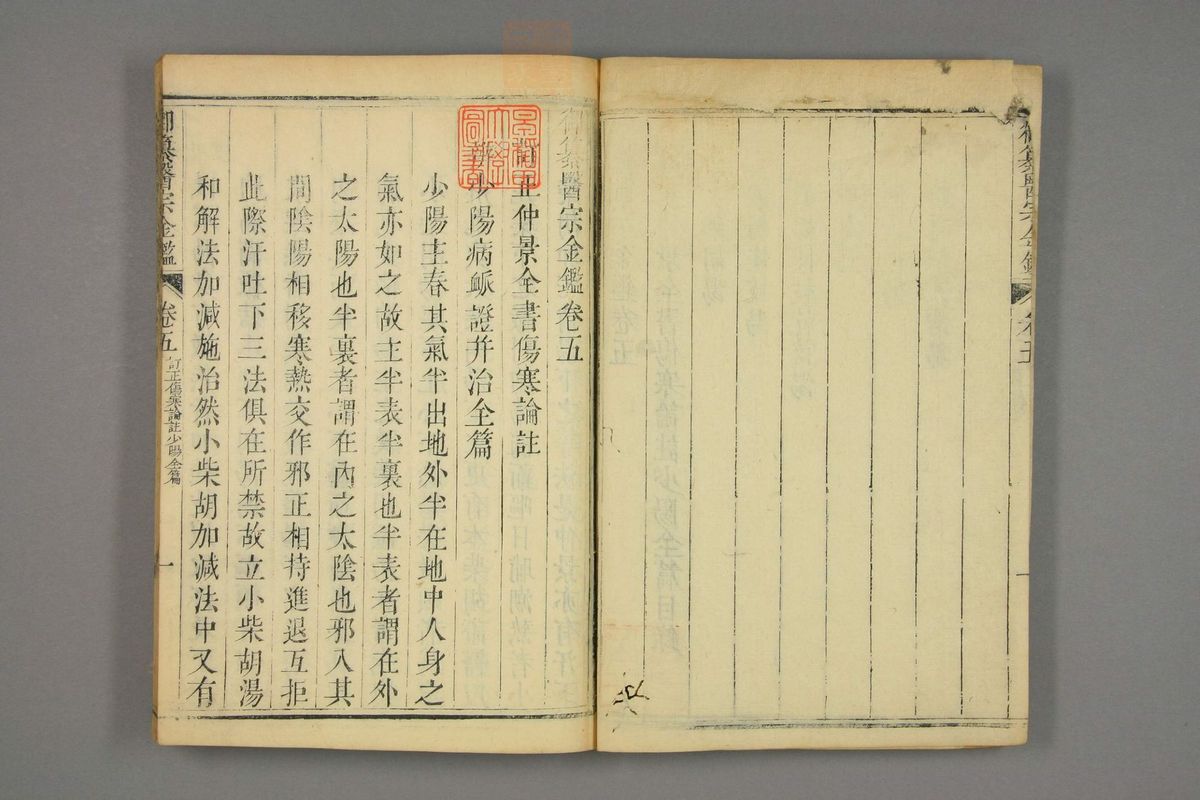 纂醫宗金鑑
卷五
一
御纂醫宗金鑑卷五
訂正仲景全書傷寒論註
辨少陽病脈證并治全篇
少陽主春其氣半出地外半在地中人身之
氣亦如之故主半表半裏也半表者謂在外
之太陽也半裏者謂在內之太陰也邪入其
間陰陽相移寒熱交作邪正相持進退互拒
此際汗吐下三法俱在所禁故立小柴胡湯
和解法加減施治然小柴胡加減法中又有
御纂醫宗金鑑
卷五
訂正傷寒論註少陽全篇
一